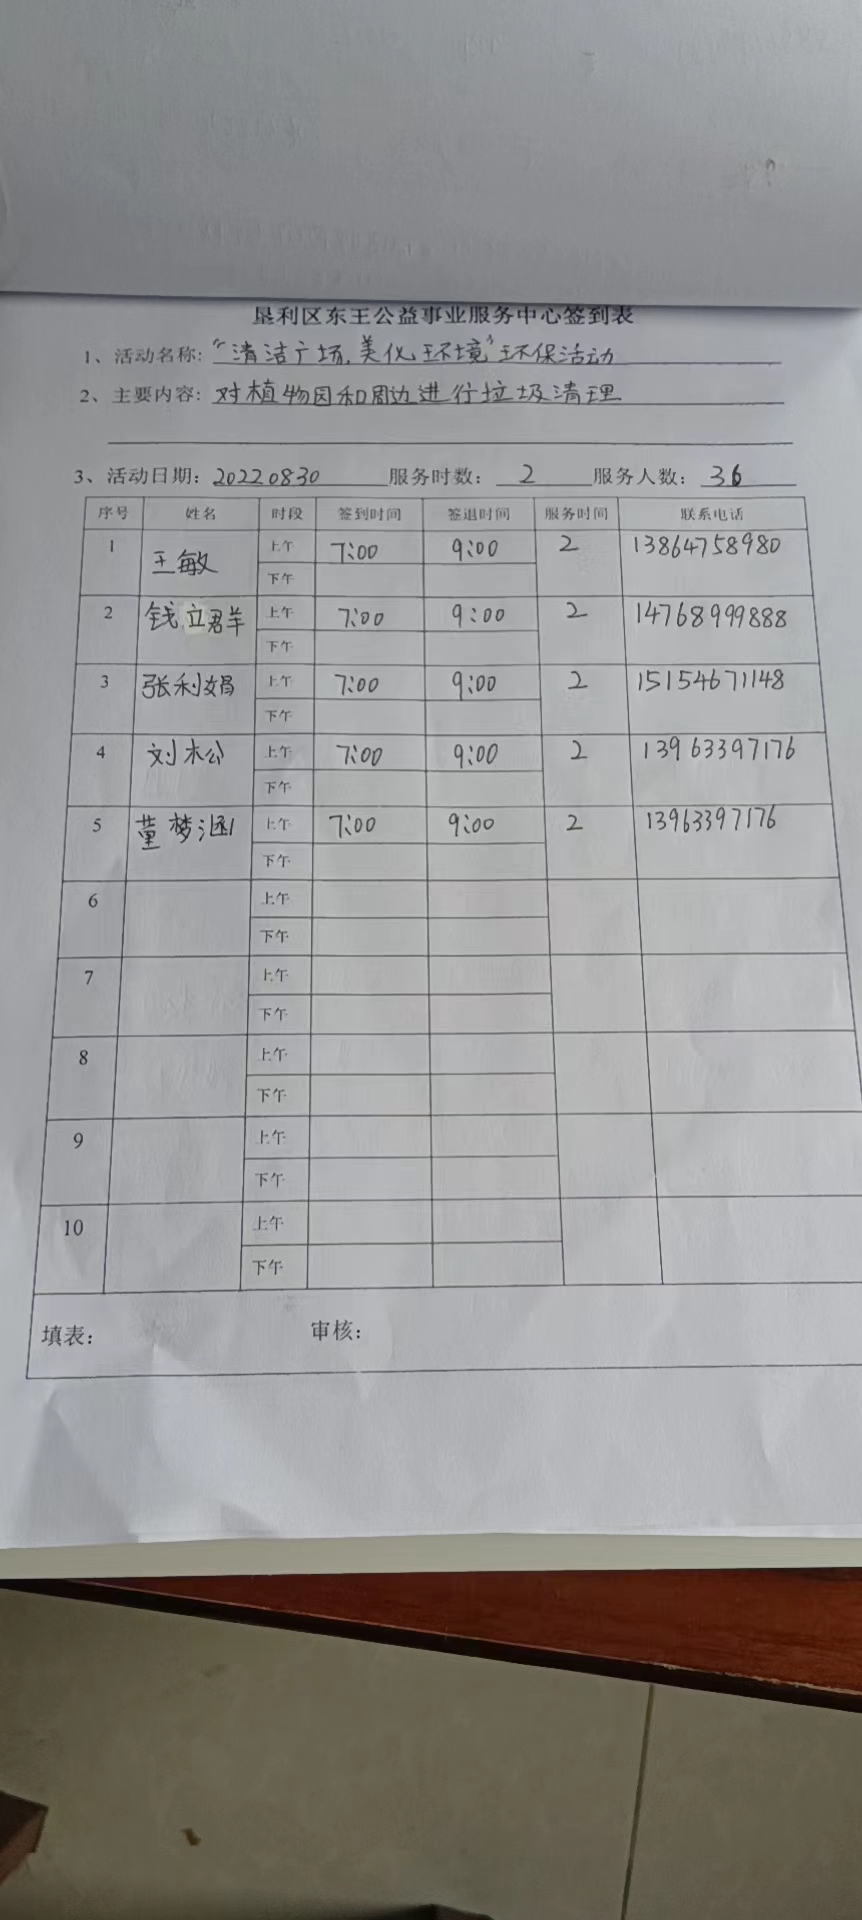 垦利区东王公益事业服务中心签到表
1、活动名称：“清洁广场，美化环境”环保活动
2、主要内容：对植物园和周边进行垃圾清理
3、活动日期：20220830 服务时数：2 服务人数：36
序号 姓名 时段 签到时间 签退时间 服务时间 联系电话
1 王敏 上午 7:00 9:00 2 13864758980
下午
2 钱立群 上午 7:00 9:00 2 14768999888
下午
3 张利娟 上午 7:00 9:00 2 15154671148
下午
4 刘松 上午 7:00 9:00 2 13963397176
下午
5 董梦涵 上午 7:00 9:00 2 13963397176
下午
6 上午
下午
7 上午
下午
8 上午
下午
9 上午
下午
10 上午
下午
填表： 审核：